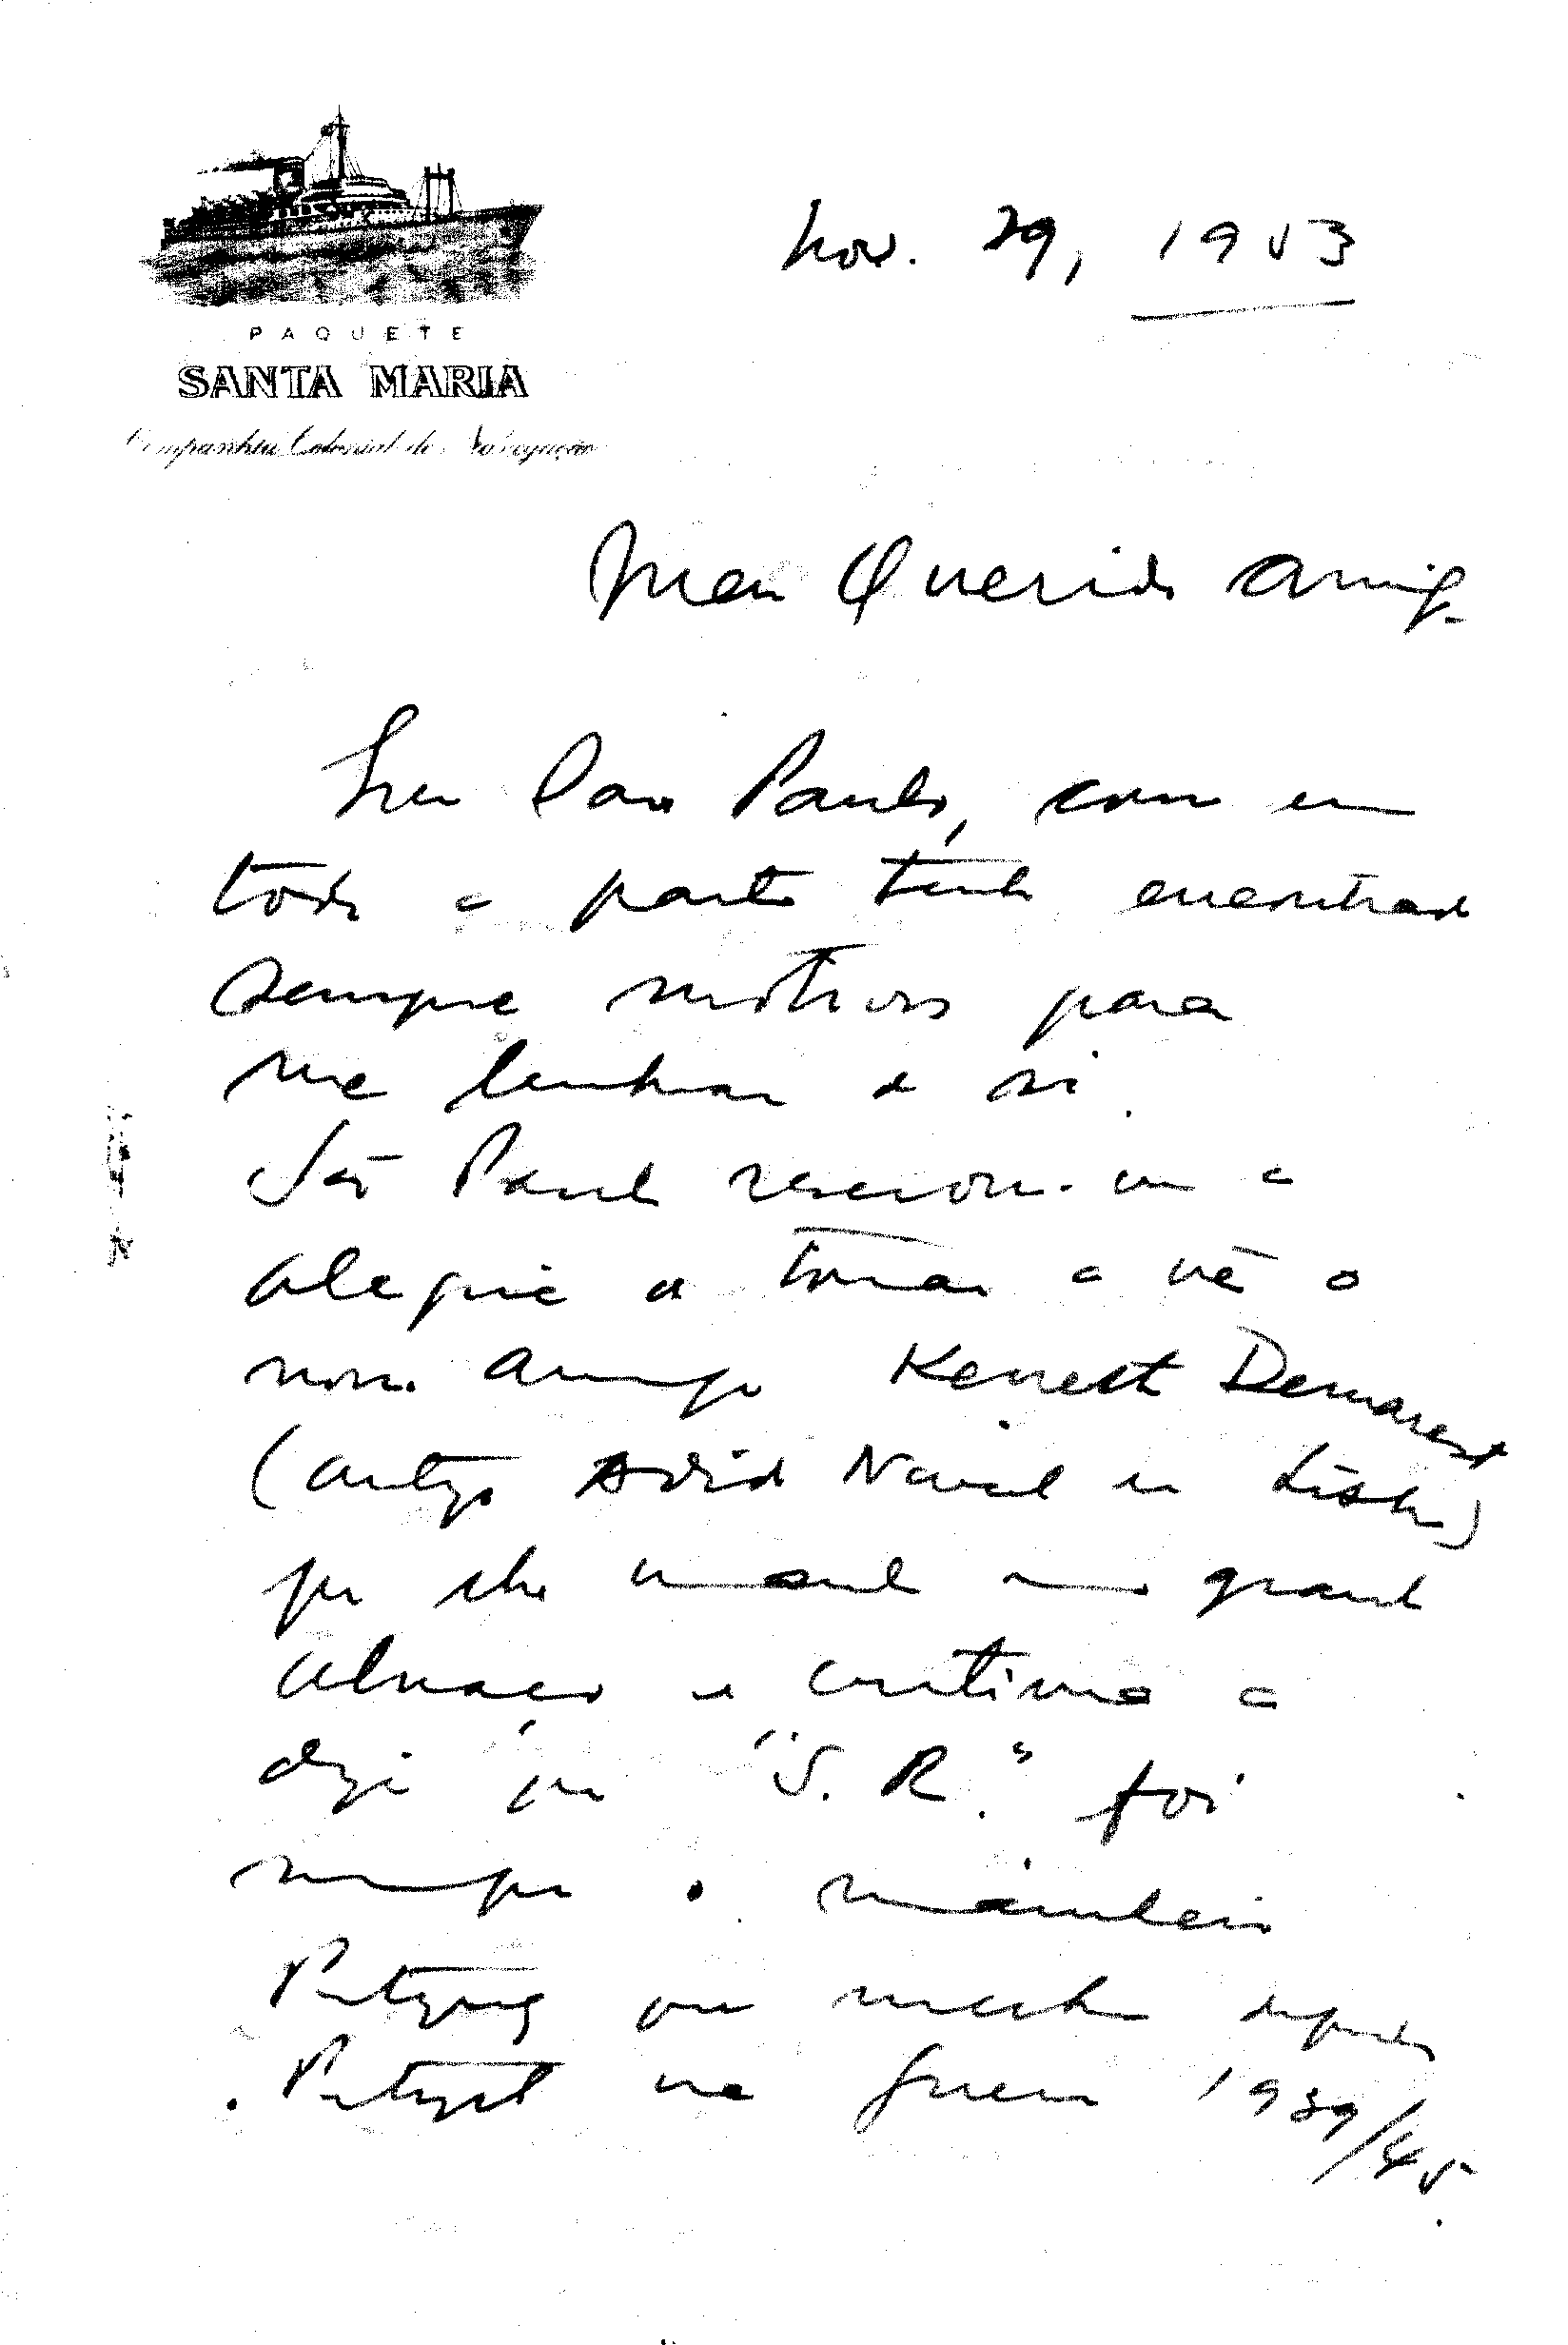 Nov. 29, 1953
PAQUETE
SANTA MARIA
Companhia Colonial de Navegação
Meu Querido Amigo
Em Sao Paulo, como em
toda a parte tenho encontrado
sempre motivos para
me lembrar de si.
São Paulo reservou-me a
alegria de tornar a vêr o
nosso amigo Kenest Demarest
(antigo Adido Naval em Lisboa)
que lhe manda um grande
abraço e continua a
dizer que "S. R." foi
sempre o
Portuguez que melhor
Portugal na guerra 1939/45.